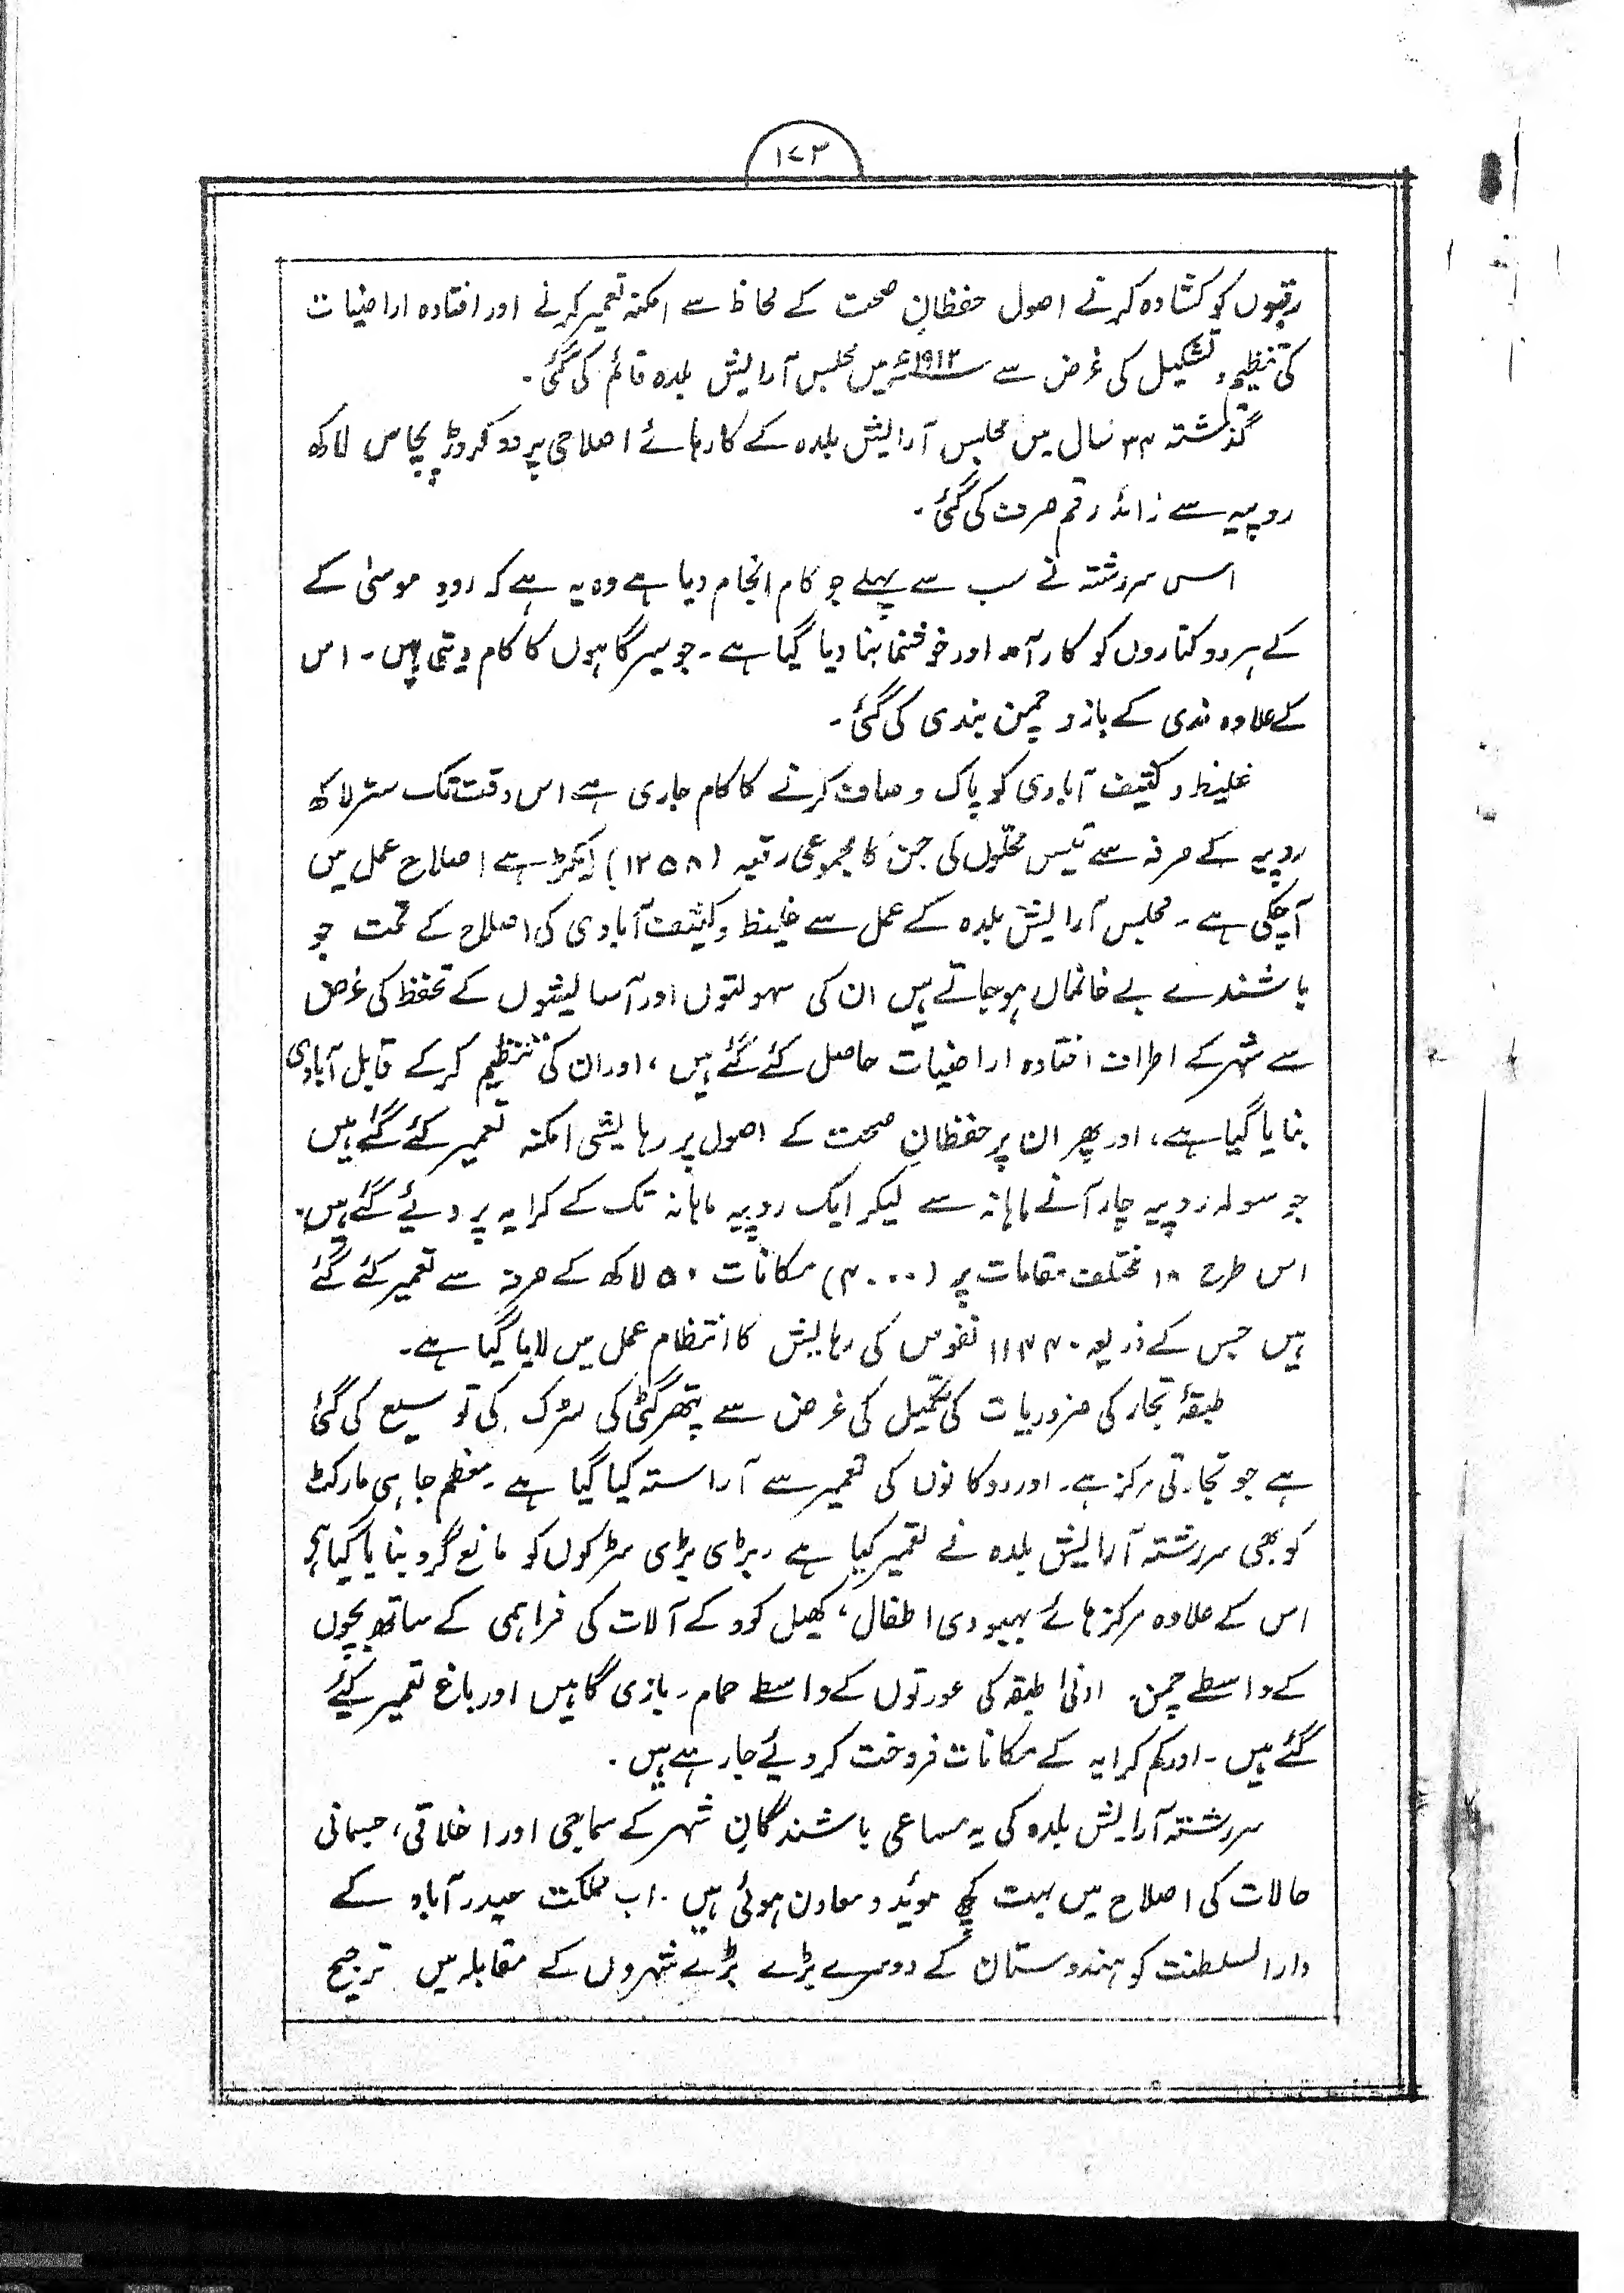 ۱۷۳
رقبوں کو کشادہ کرنے اصول حفظانِ صحت کے لحاظ سے امکنہ تعمیر کرنے اور افتادہ اراضیات
کی تنظیم و تشکیل کی غرض سے ۱۹۱۲ء میں مجلس آرایش بلدہ قائم کی گئی۔
گذشتہ ۳۴ سال میں مجلس آرایش بلدہ کے کارہائے اصلاحی پر دو کروڑ پچاس لاکھ
روپیہ سے زائد رقم صرف کی گئی۔
اس سررشتہ نے سب سے پہلے جو کام انجام دیا ہے وہ یہ ہے کہ رودِ موسیٰ کے
کے ہر دو کناروں کو کارآمد اور خوشنما بنا دیا گیا ہے۔ جو سیرگاہوں کا کام دیتی ہیں۔ اس
کے علاوہ ندی کے بازو چمن بندی کی گئی۔
غلیظ و کثیف آبادی کو پاک و صاف کرنے کا کام جاری ہے اس وقت تک ستر لاکھ
روپیہ کے صرفہ سے تیس محلوں کی جن کا مجموعی رقبہ (۱۲۵۸) ایکڑ ہے اصلاح عمل میں
آچکی ہے۔ مجلس آرایش بلدہ کے عمل سے غلیظ و کثیف آبادی کی اصلاح کے تحت جو
باشندے بے خانماں ہو جاتے ہیں ان کی سہولتوں اور آسایشوں کے تحفظ کی غرض
سے شہر کے اطراف افتادہ اراضیات حاصل کئے گئے ہیں، اور ان کی تنظیم کر کے قابل آبادی
بنایا گیا ہے، اور پھر ان پر حفظانِ صحت کے اصول پر رہایشی امکنہ تعمیر کئے گئے ہیں
جو سولہ روپیہ چار آنے ماہانہ سے لیکر ایک روپیہ ماہانہ تک کے کرایہ پر دئیے گئے ہیں۔
اس طرح ۱۸ مختلف مقامات پر (۴۰۰۰) مکانات ۵۰ لاکھ کے صرفہ سے تعمیر کئے گئے
ہیں جس کے ذریعہ ۱۱۴۴۰ نفوس کی رہایش کا انتظام عمل میں لایا گیا ہے۔
طبقۂ تجار کی ضروریات کی تکمیل کی غرض سے پتھر گٹی کی سڑک کی توسیع کی گئی
ہے جو تجارتی مرکز ہے۔ اور دوکانوں کی تعمیر سے آراستہ کیا گیا ہے۔ معظم جاہی مارکٹ
کو بھی سررشتہ آرایش بلدہ نے تعمیر کیا ہے۔ بڑی بڑی سڑکوں کو مانع گرد بنایا گیا ہے
اس کے علاوہ مرکزہائے بہبودی اطفال، کھیل کود کے آلات کی فراہمی کے ساتھ بچوں
کے واسطے چمن۔ ادنیٰ طبقہ کی عورتوں کے واسطے حمام۔ بازی گاہیں اور باغ تعمیر کئے
گئے ہیں۔ اور کم کرایہ کے مکانات فروخت کر دئیے جا رہے ہیں۔
سررشتہ آرایش بلدہ کی یہ مساعی باشندگانِ شہر کے سماجی اور اخلاقی، جسمانی
حالات کی اصلاح میں بہت کچھ موئید و معاون ہوئی ہیں۔ اب مملکت حیدرآباد کے
دارالسلطنت کو ہندوستان کے دوسرے بڑے بڑے شہروں کے مقابلہ میں ترجیح